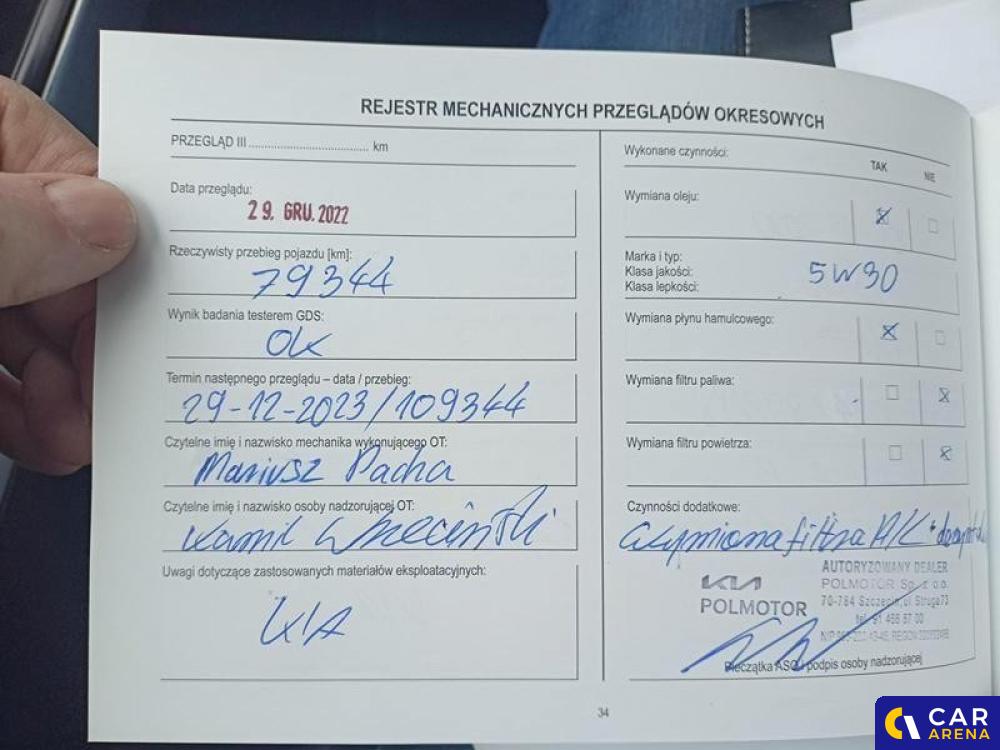 REJESTR MECHANICZNYCH PRZEGLĄDÓW OKRESOWYCH
PRZEGLĄD III ........................................ km
Data przeglądu:
29. GRU. 2022
Rzeczywisty przebieg pojazdu [km]:
79344
Wynik badania testerem GDS:
OK
Termin następnego przeglądu – data / przebieg:
29-12-2023/109344
Czytelne imię i nazwisko mechanika wykonującego OT:
Mariusz Pacha
Czytelne imię i nazwisko osoby nadzorującej OT:
Kamil
Uwagi dotyczące zastosowanych materiałów eksploatacyjnych:
KIA
Wykonane czynności:
TAK NIE
Wymiana oleju:
Marka i typ:
Klasa jakości:
Klasa lepkości:
5W30
Wymiana płynu hamulcowego:
Wymiana filtru paliwa:
Wymiana filtru powietrza:
Czynności dodatkowe:
Wymiona filtra A/K +
KIA
POLMOTOR
AUTORYZOWANY DEALER
POLMOTOR Sp. z o.o.
70-784 Szczecin, ul. Struga 73
Pieczątka ASO i podpis osoby nadzorującej
34
CAR
ARENA